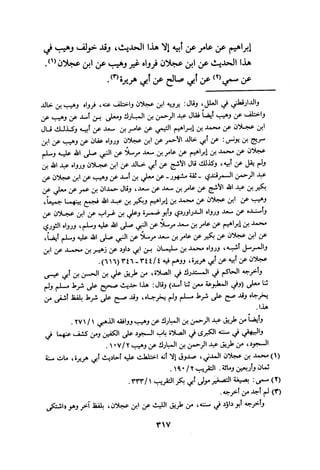 إبراهيم عن عامر عن أبيه إلا هذا الحديث، وقد خولف وهيب في
هذا الحديث عن ابن عجلان فرواه غير وهيب عن ابن عجلان (١).
عن سمي (٢) عن أبي صالح عن أبي هريرة (٣).
والدارقطني في العلل، وقال: يرويه ابن عجلان واختلف عنه، فرواه وهيب بن خالد
واختلف عن وهيب أيضاً فقال عبد الرحمن بن المبارك ومعلى بن أسد عن وهيب عن
ابن عجلان عن محمد بن إبراهيم التيمي عن عامر بن سعد عن أبيه وكذلك قال
سريج بن يونس: عن أبي خالد الأحمر عن ابن عجلان ورواه عفان عن وهيب عن ابن
عجلان عن محمد بن إبراهيم عن عامر بن سعد مرسلاً عن النبي صلى الله عليه وسلم
ولم يقل عن أبيه، وكذلك قال الأشج عن أبي خالد عن ابن عجلان ورواه عبد الله بن
عبد الرحمن السمرقندي - ثقة مشهور - عن معلى بن أسد عن وهيب عن ابن عجلان عن
بكير بن عبد الله الأشج عن عامر بن سعد عن سعد، وقال حمدان بن عمر عن معلى عن
وهيب عن ابن عجلان عن محمد بن إبراهيم وبكير بن عبد الله فجمع بينهما جميعاً،
وأسنده عن سعد ورواه الدراوردي وأبو ضمرة وعلي بن غراب عن ابن عجلان عن
محمد بن إبراهيم عن عامر بن سعد مرسلاً عن النبي صلى الله عليه وسلم، ورواه الثوري
عن ابن عجلان عن بكير عن عامر بن سعد مرسلاً عن النبي صلى الله عليه وسلم أيضاً،
والمرسل أشبه، ورواه محمد بن سليمان بن أبي داود عن زهير بن محمد عن ابن
عجلان عن أبيه عن أبي هريرة، ووهم فيه ٣٤٤/٤-٣٤٦ (٦١٦).
وأخرجه الحاكم في المستدرك في الصلاة، من طريق علي بن الحسن بن أبي عيسى
ثنا معلى (وفي المطبوعة معن ثنا أسد) وقال: هذا حديث صحيح على شرط مسلم ولم
يخرجاه وقد صح على شرط مسلم ولم يخرجاه، وقد صح على شرط بلفظ أشفى من
هذا.
وأيضاً من طريق عبد الرحمن بن المبارك عن وهيب ووافقه الذهبي ٢٧١/١.
والبيهقي في سننه الكبرى في الصلاة باب السجود على الكفين ومن كشف عنهما في
السجود، من طريق عبد الرحمن بن المبارك عن وهيب ١٠٧/٢.
(١) محمد بن عجلان المدني، صدوق إلا أنه اختلطت عليه أحاديث أبي هريرة، مات سنة
ثمان وأربعين ومائة. التقريب ١٩٠/٢.
(٢) سمي: بصيغة التصغير مولى أبي بكر التقريب ٣٣٣/١.
(٣) لم أجد من أخرجه.
وأخرجه أبو داؤد في سننه، من طريق الليث عن ابن عجلان، بلفظ آخر وهو «اشتكى
٣١٧